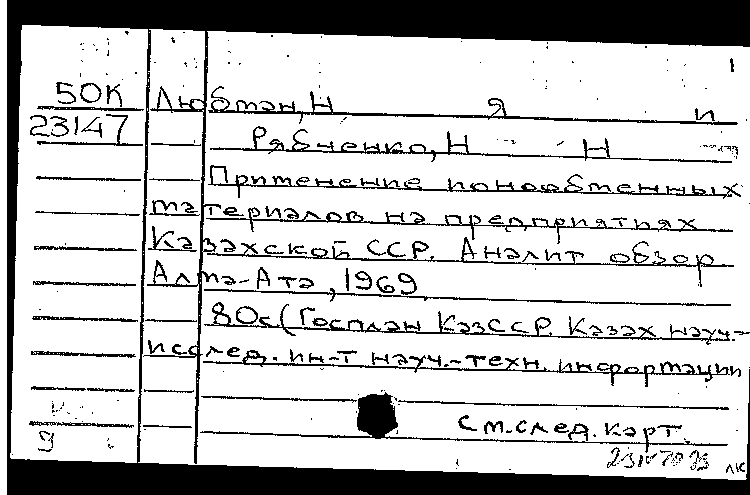 1
50К Любман, Н я и
23147 Рябченко, Н Н
Применение ионообменных
материалов на предприятиях
Казахской ССР. Аналит обзор
Алма-Ата, 1969
80с (Госплан КазССР. Казах науч.-
исслед. ин-т науч.-техн. информации
см. след. карт.
9
лк